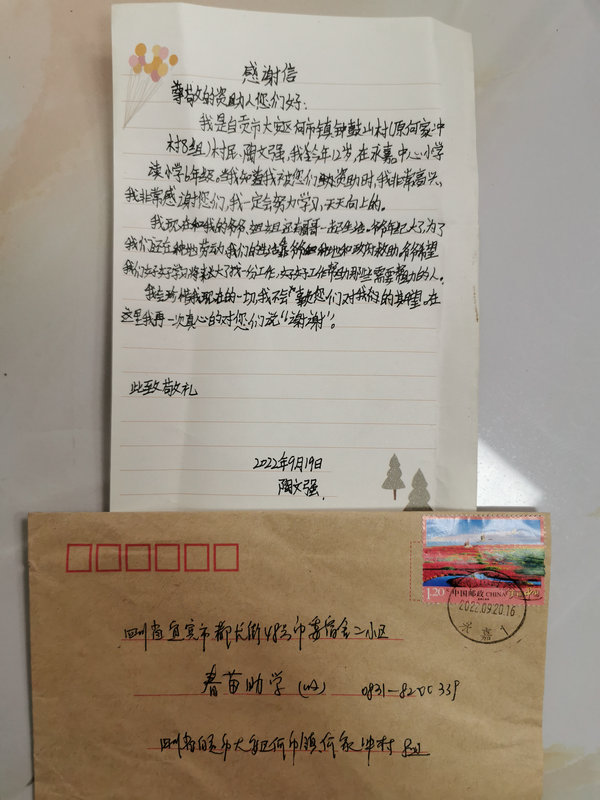 感谢信
尊敬的资助人您们好:
我是自贡市大安区何市镇钟鼓山村(原何家冲
村8组)村民、陶文强,我今年12岁,在永嘉中心小学
读小学6年级。当我知道我被您们资助时,我非常高兴、
我非常感谢您们,我一定会努力学习,天天向上的。
我现在和我的爷爷、还有哥哥一起生活。爷爷年纪大了,为了
我们还在种地劳动,我们的生活靠爷爷种地和政府救助,爷爷希望
我们好好学习将来长大了找一份工作,好好工作帮助那些需要帮助的人。
我会珍惜我现在的一切,我不会辜负您们对我们的期望。在
这里我再一次真心的对您们说“谢谢”。
此致敬礼
2022年9月19日
陶文强
1.20 中国邮政 CHINA
2022.09.20.16
永嘉
四川省宜宾市都长街48号市委宿舍二小区
春苗助学(收) 0831-8200339
四川省自贡市大安区何市镇何家冲村